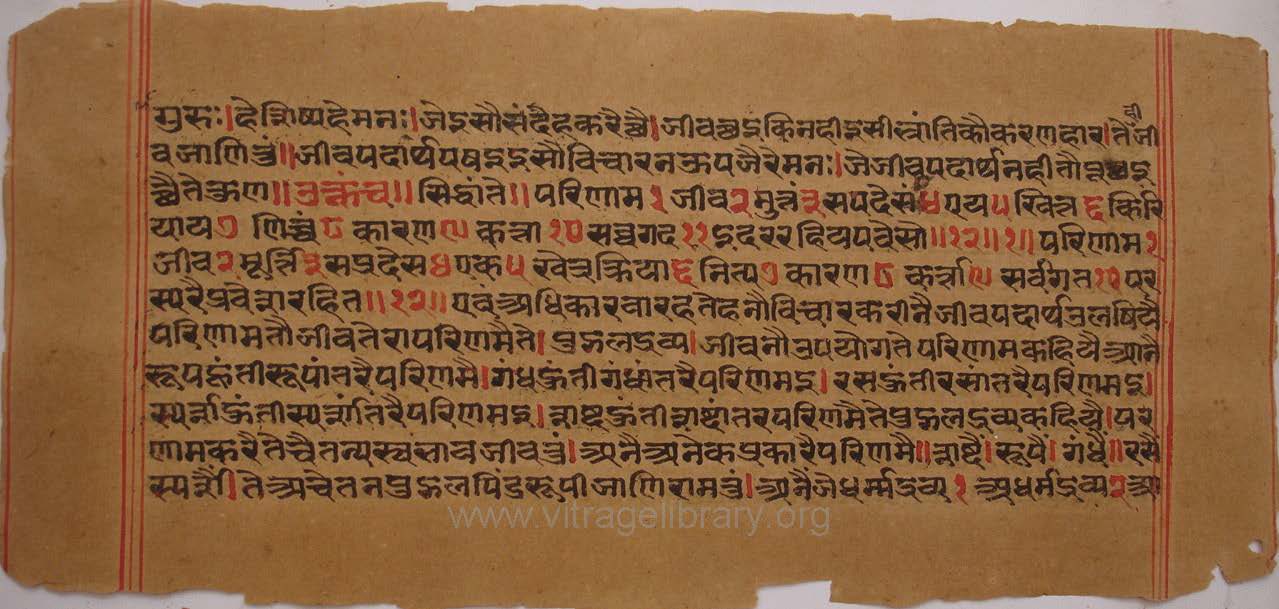 गुरुः। हे शिष्य हे मनः। जे इसौ संदेह करै छै। जीव छइ कि नही इसी भ्रांति कौ करणहार। ते जी
व जाणिवुं॥ जीवपदार्थ पषइ इसौ विचार न ऊपजै रे मनः। जे जीवपदार्थ नही तौ
छै ते ऊण॥ उक्तंच॥ सिद्धांते॥ परिणाम १ जीव २ मुत्तं ३ सपदेसं ४ एय ५ खित्त ६ किरि
याय ७ णिच्चं ८ कारण ९ कत्ता १० सव्वगद ११ इदररहियपवेसो॥१२॥१॥ परिणाम १
जीव २ मूर्त्ति ३ सप्रदेस ४ एक ५ खेत्र क्रिया ६ नित्य ७ कारण ८ कर्त्ता ९ सर्वगत १० पर
स्परैप्रवेशरहित॥१२॥ एवं अधिकार बारह तेहनौ विचार करीनै जीवपदार्थ उलषियै
परिणाम तौ जीव ते रापरिणमै ते। पुद्गलद्रव्य। जीवनौ उपयोग ते परिणाम कहियै अनै
रूप हुंती रूपांतरै परिणमै। गंध हुंती गंधांतरै परिणमइ। रस हुंती रसांतरै परिणमइ।
स्पर्श हुंती स्पर्शांतरै परिणमइ। शब्द हुंती शब्दांतर परिणमै ते पुद्गलद्रव्य कहियै। पर
णाम करै ते चैतन्यस्वभाव जीवनुं। अनै अनेक प्रकारै परिणमै॥ शब्दै। रूपै। गंधै॥ रसै
स्पर्शै। ते अचेतन पुद्गलपिंड रूपी जाणि रामनुं। अनै जे धर्म्मद्रव्य १ अधर्मद्रव्य २ आ
www.vitragelibrary.org